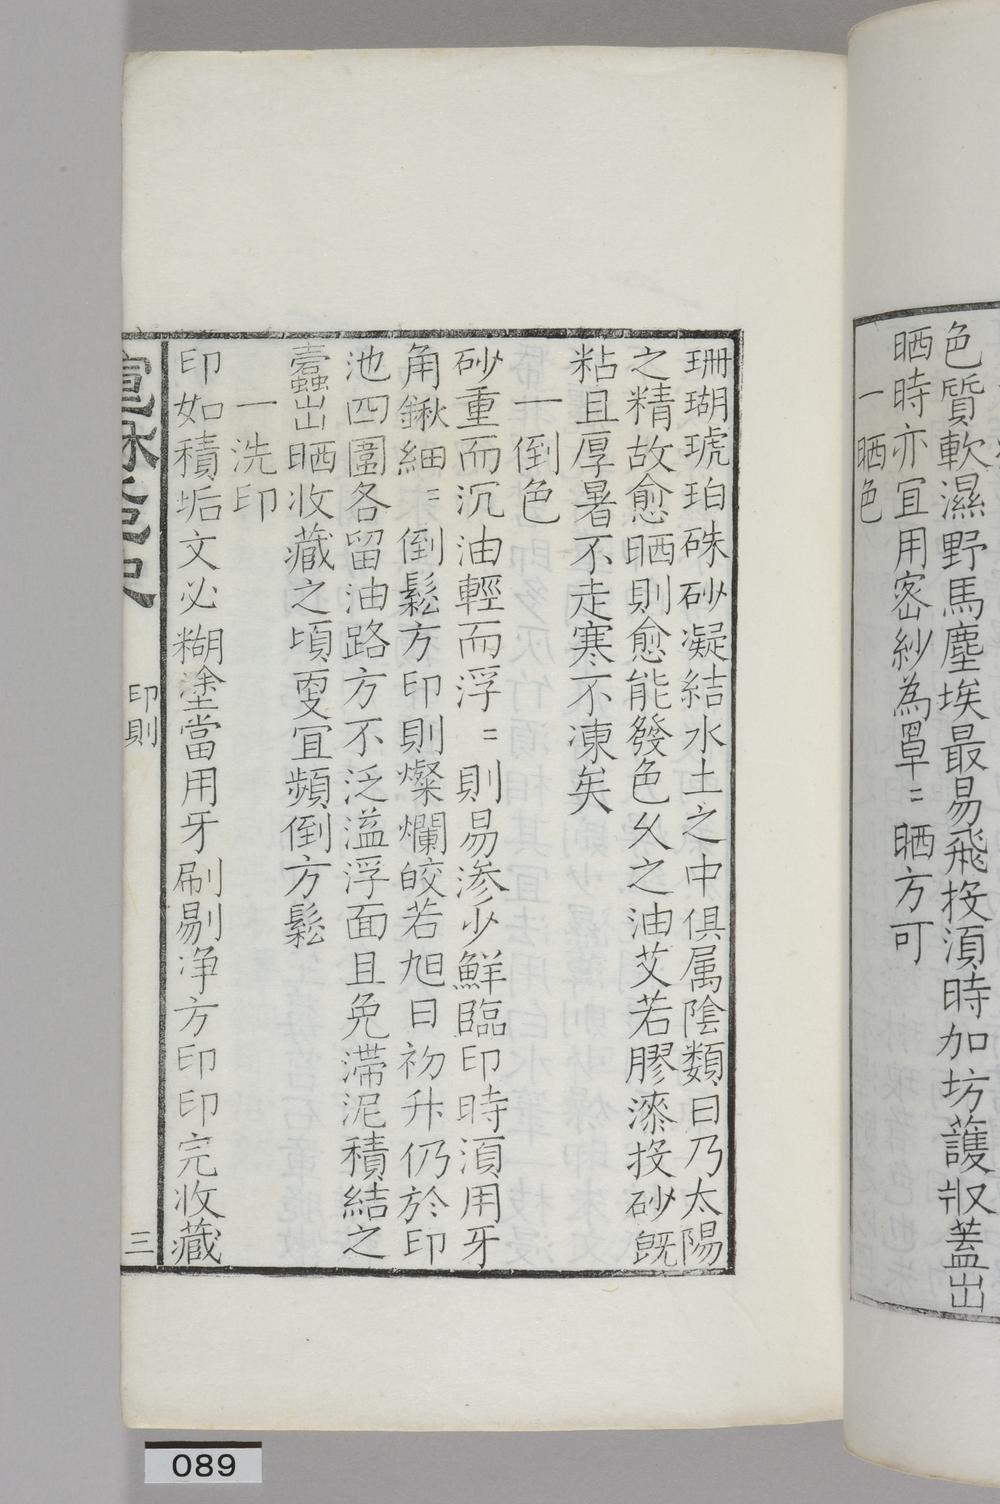 色質軟濕野馬塵埃最易飛投湏時加坊䕶収蓋出
晒時亦冝用密紗為罩〻晒方可
一晒色
珊瑚琥珀硃砂凝結水土之中俱属陰類曰乃太陽
之精故愈晒則愈能發色乆之油艾若膠漆投砂旣
粘且厚暑不走寒不凍矣
一倒色
砂重而沉油輕而浮〻則易渗少鮮臨印時湏用牙
角鍬細〻倒鬆方印則燦爛皎若旭日初升仍於印
池四圍各留油路方不泛溢浮面且免滯泥積結之
蠹出晒收藏之頃更冝頻倒方鬆
一洗印
印如積垢文必糊塗當用牙刷剔净方印印完收藏
印則
三
089